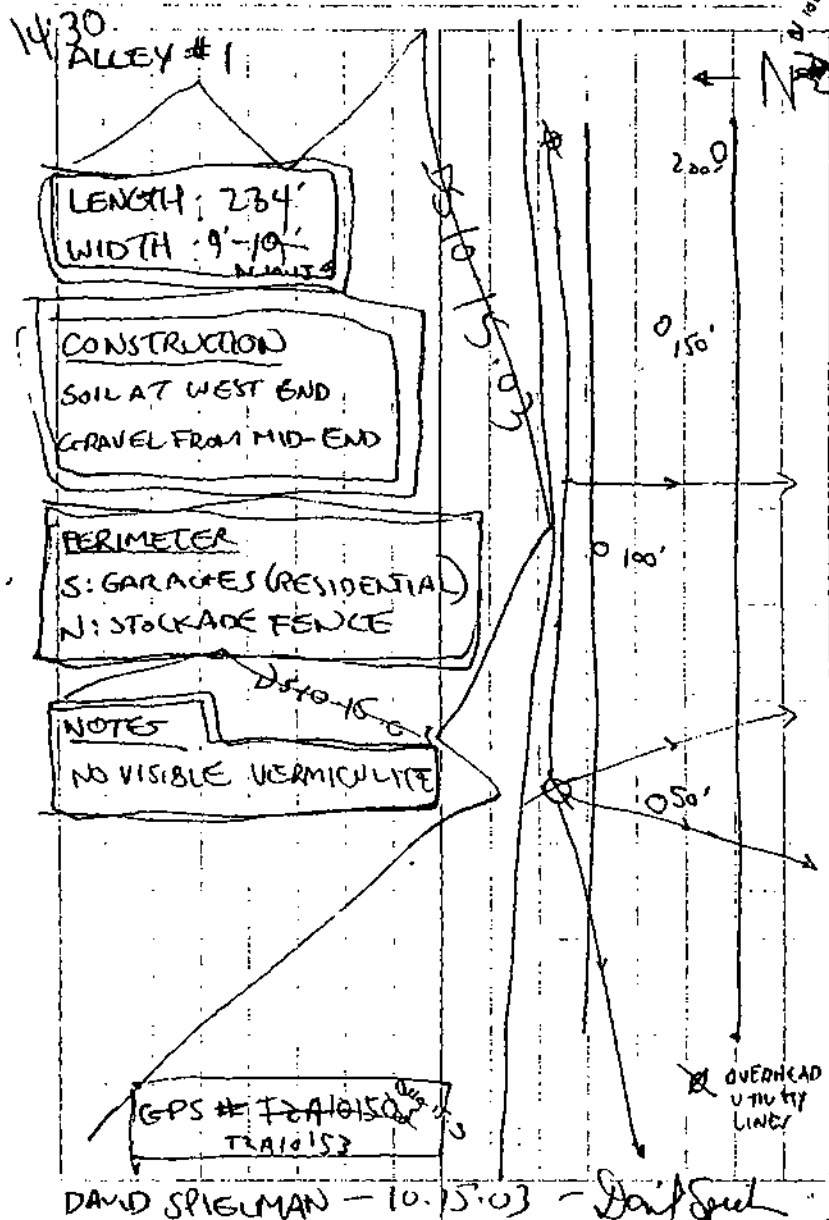 14:30
ALLEY #1
N
LENGTH: 234'
WIDTH: 9'-19'
CONSTRUCTION
SOIL AT WEST END
GRAVEL FROM MID-END
PERIMETER
S: GARAGES (RESIDENTIAL)
N: STOCKADE FENCE
NOTES
NO VISIBLE VERMICULITE
DS 10-15-03
DS 10-15
200'
150'
100'
50'
OVERHEAD
UTILITY
LINES
GPS # TZA10150
TZA10153
DAVID SPIELMAN - 10.15.03 -